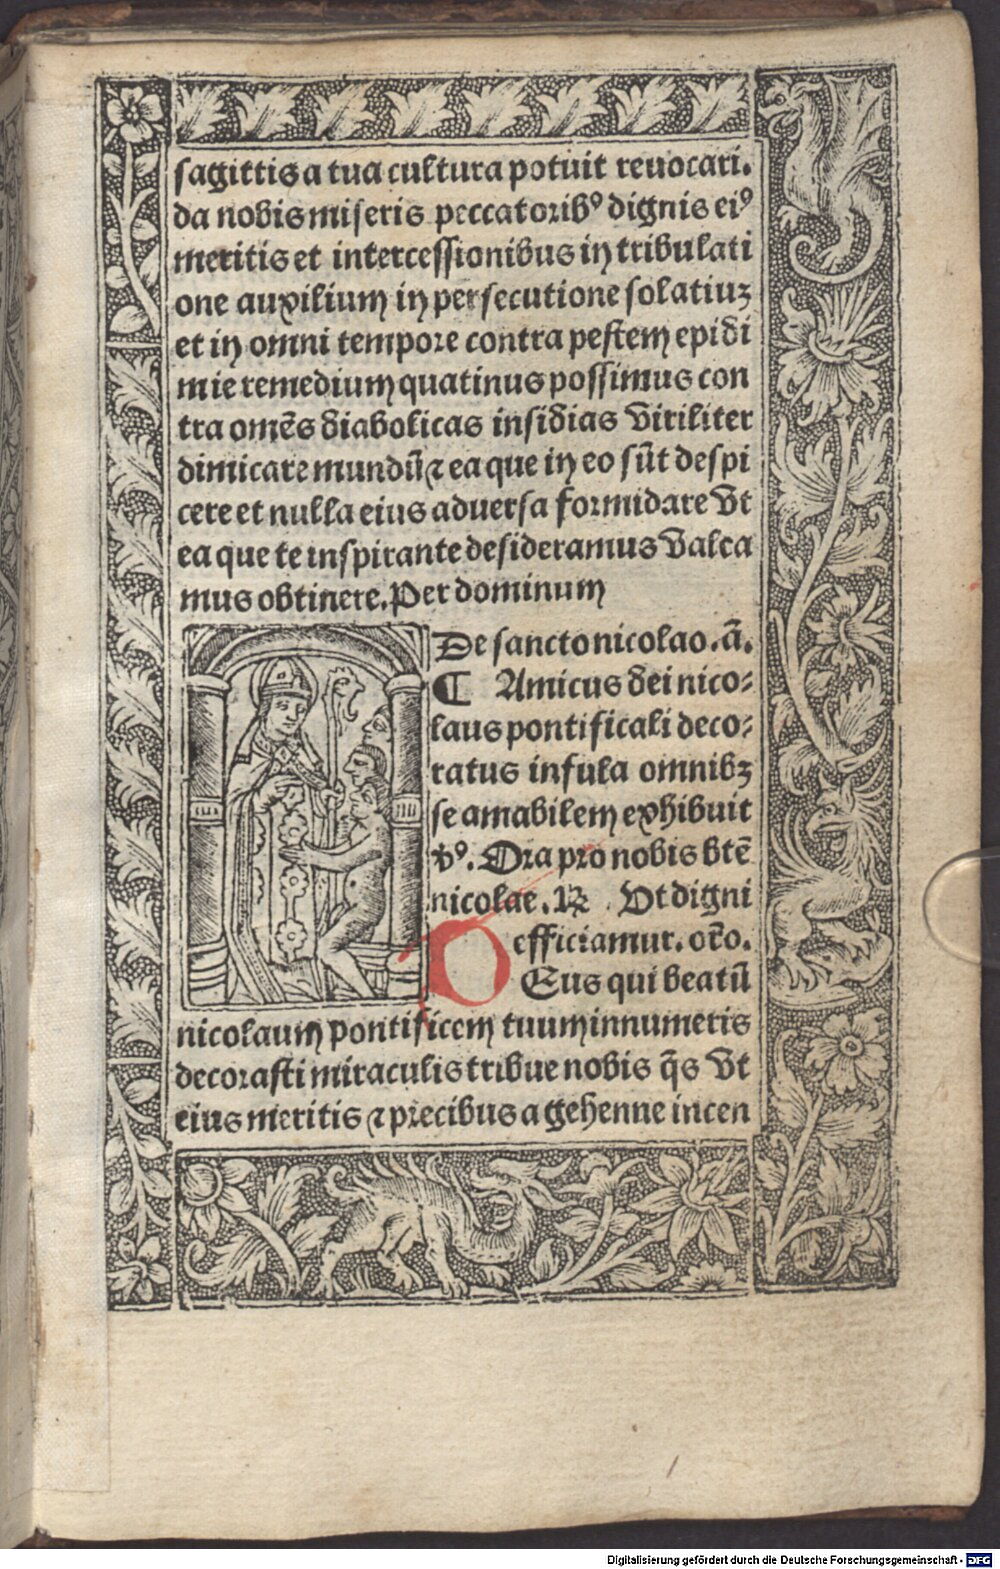 sagittis a tua cultura potuit reuocari.
da nobis miseris peccatoribꝰ dignis eiꝰ
meritis et intercessionibus in tribulati
one auxilium in persecutione solatiuꝫ
et in omni tempore contra pestem epidi
mie remedium quatinus possimus con
tra omēs diabolicas insidias viriliter
dimicare mundū ⁊ ea que in eo sūt despi
cere et nulla eius aduersa formidare vt
ea que te inspirante desideramus valea
mus obtinere. Per dominum
De sancto nicolao. añ.
¶ Amicus dei nico⸗
laus pontificali deco⸗
ratus infula omnibꝫ
se amabilem exhibuit
v̄ꝰ. Ora pro nobis btē
nicolae. ℟ Vt digni
efficiamur. or̄o.
DEus qui beatū
nicolaum pontificem tuum innumeris
decorasti miraculis tribue nobis q̄s vt
eius meritis ⁊ precibus a gehenne incen
Digitalisierung gefördert durch die Deutsche Forschungsgemeinschaft - DFG